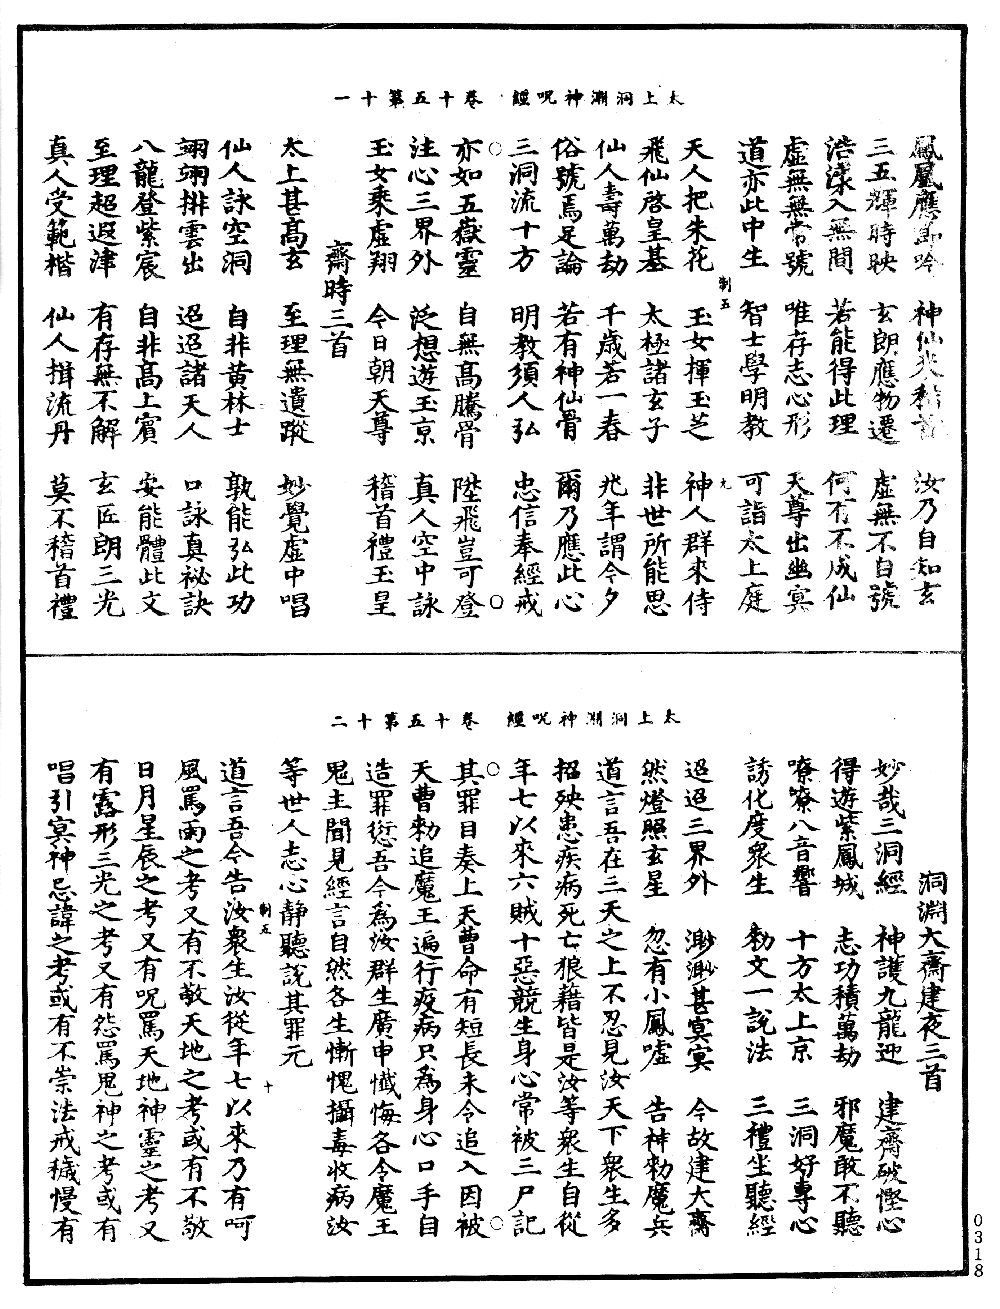 太上洞淵神呪經 卷十五第十一
鳳凰應節吟 神仙 汝乃自知玄
三五輝時映 玄朗應物遷 虛無不自號
浩漾入無間 若能得此理 何有不成仙
虛無無常號 唯存志心形 天尊出幽冥
道亦此中生 智士學明教 可詣太上庭
制五 九
天人把朱花 玉女揮玉芝 神人群來侍
飛仙啓皇基 太極諸玄子 非世所能思
仙人壽萬劫 千歲若一春 兆年謂今夕
俗號焉足論 若有神仙骨 爾乃應此心
三洞流十方 明教須人弘 忠信奉經戒
亦如五嶽靈 自無高騰骨 陞飛豈可登
注心三界外 泛想遊玉京 真人空中詠
玉女乘虛翔 今日朝天尊 稽首禮玉皇
齋時三首
太上甚高玄 至理無遺蹤 妙覺虛中唱
仙人詠空洞 自非黃林士 孰能弘此功
翊翊排雲出 迢迢諸天人 口詠真祕訣
八龍登紫宸 自非高上賓 安能體此文
至理超遐津 有存無不解 玄匠朗三光
真人受範楷 仙人揖流丹 莫不稽首禮
太上洞淵神呪經 卷十五第十二
洞淵大齋建夜三首
妙哉三洞經 神護九龍迎 建齋破慳心
得遊紫鳳城 志功積萬劫 邪魔敢不聽
嘹嘹八音響 十方太上京 三洞好專心
誘化度衆生 勑文一說法 三禮坐聽經
迢迢三界外 渺渺甚冥冥 今故建大齋
然燈照玄星 忽有小鳳嘘 告神勑魔兵
道言吾在三天之上不忍見汝天下衆生多
招殃患疾病死亡狼藉皆是汝等衆生自從
年七以來六賊十惡競生身心常被三尸記
其罪目奏上天曹命有短長未令追入因被
天曹勑追魔王遍行疫病只爲身心口手自
造罪愆吾今爲汝群生廣申懺悔各令魔王
鬼主聞見經言自然各生慚愧攝毒收病汝
等世人志心靜聽說其罪元
制五 十
道言吾今告汝衆生汝從年七以來乃有呵
風罵雨之考又有不敬天地之考或有不敬
日月星辰之考又有呪罵天地神靈之考又
有露形三光之考又有怨罵鬼神之考或有
唱引冥神忌諱之考或有不崇法戒穢慢有
0318